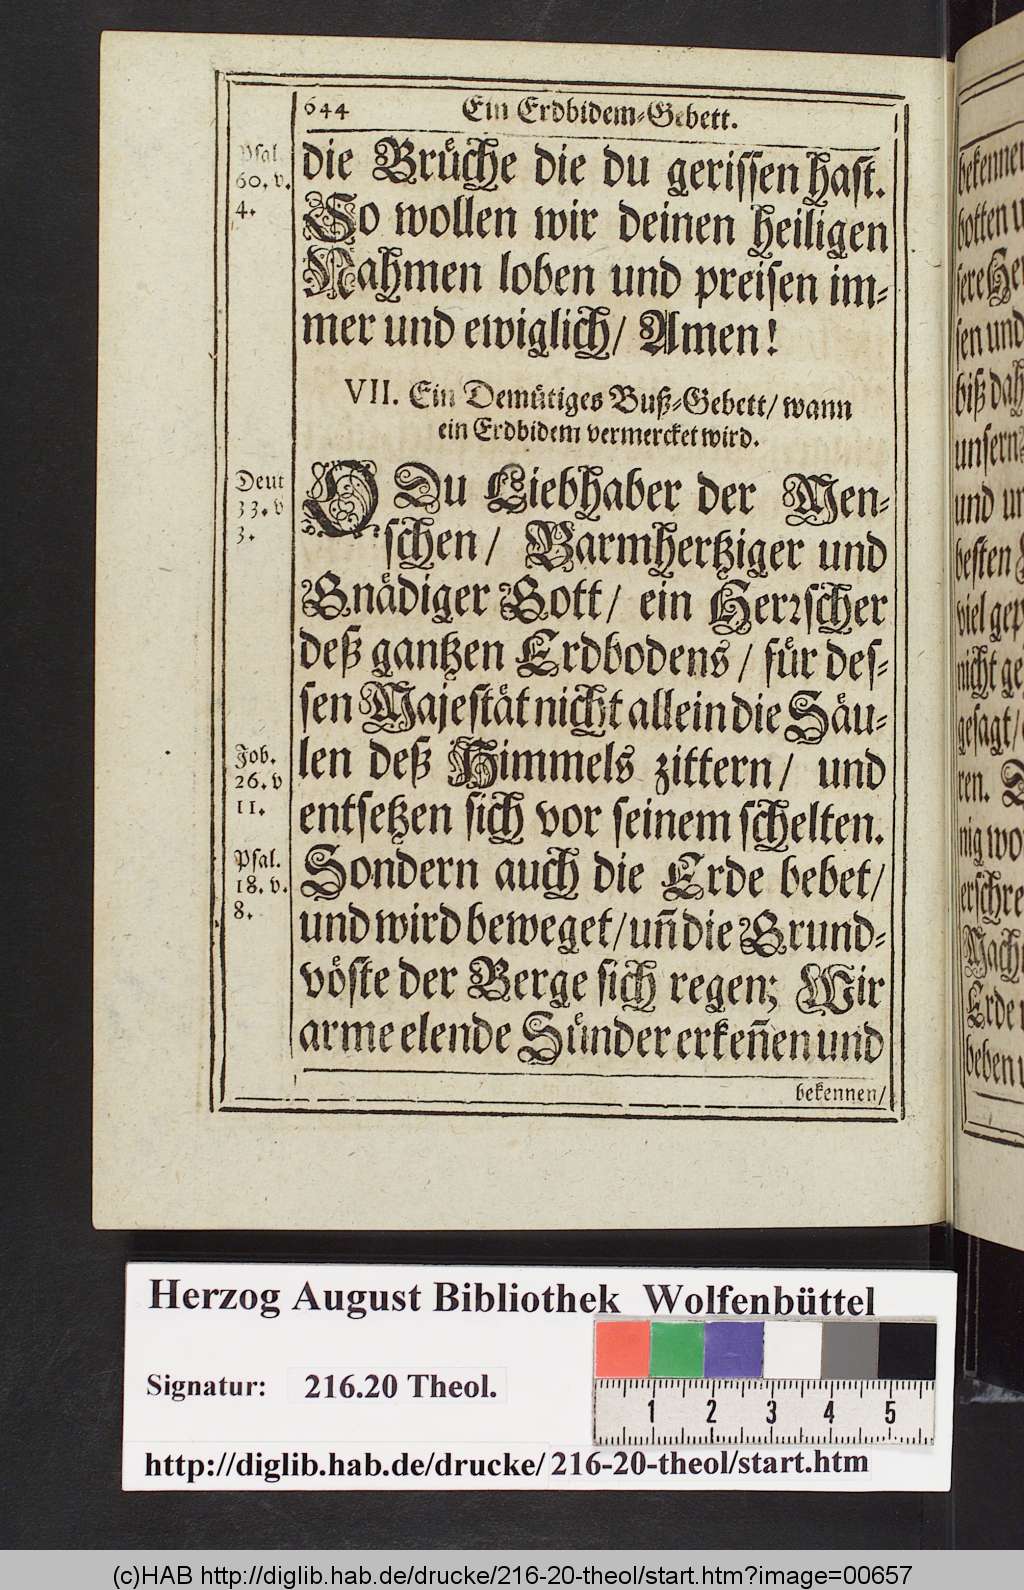 644 Ein Erdbidem-Gebett.
Psal.
60. v.
4.
die Brüche die du gerissen hast.
So wollen wir deinen heiligen
Nahmen loben und preisen im-
mer und ewiglich/ Amen!
VII. Ein Demütiges Buß-Gebett/ wann
ein Erdbidem vermercket wird.
Deut
33. v
3.
O Du Liebhaber der Men-
schen/ Barmhertziger und
Gnädiger Gott/ ein Herrscher
deß gantzen Erdbodens/ für des-
sen Majestät nicht allein die Säu-
Job.
26. v
11.
len deß Himmels zittern/ und
entsetzen sich vor seinem schelten.
Psal.
18. v.
8.
Sondern auch die Erde bebet/
und wird beweget/ uñ die Grund-
vöste der Berge sich regen; Wir
arme elende Sünder erkeñen und
bekennen/
bekennen
botten u
sere
sen und
biß dah
unsern
und un
besten
viel gep
nicht ge
gesagt/
ren.
nig wo
erschre
Mach
Erde
beben
Herzog August Bibliothek Wolfenbüttel
Signatur: 216.20 Theol.
1 2 3 4 5
http://diglib.hab.de/drucke/216-20-theol/start.htm
(c)HAB http://diglib.hab.de/drucke/216-20-theol/start.htm?image=00657